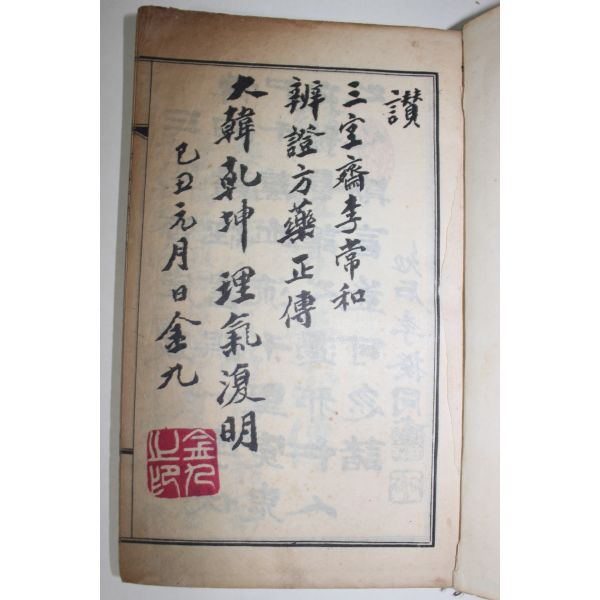 讃
三室齋李常和
辨證方藥正傳
大韓乾坤 理氣復明
己丑元月日 金九
金九之印